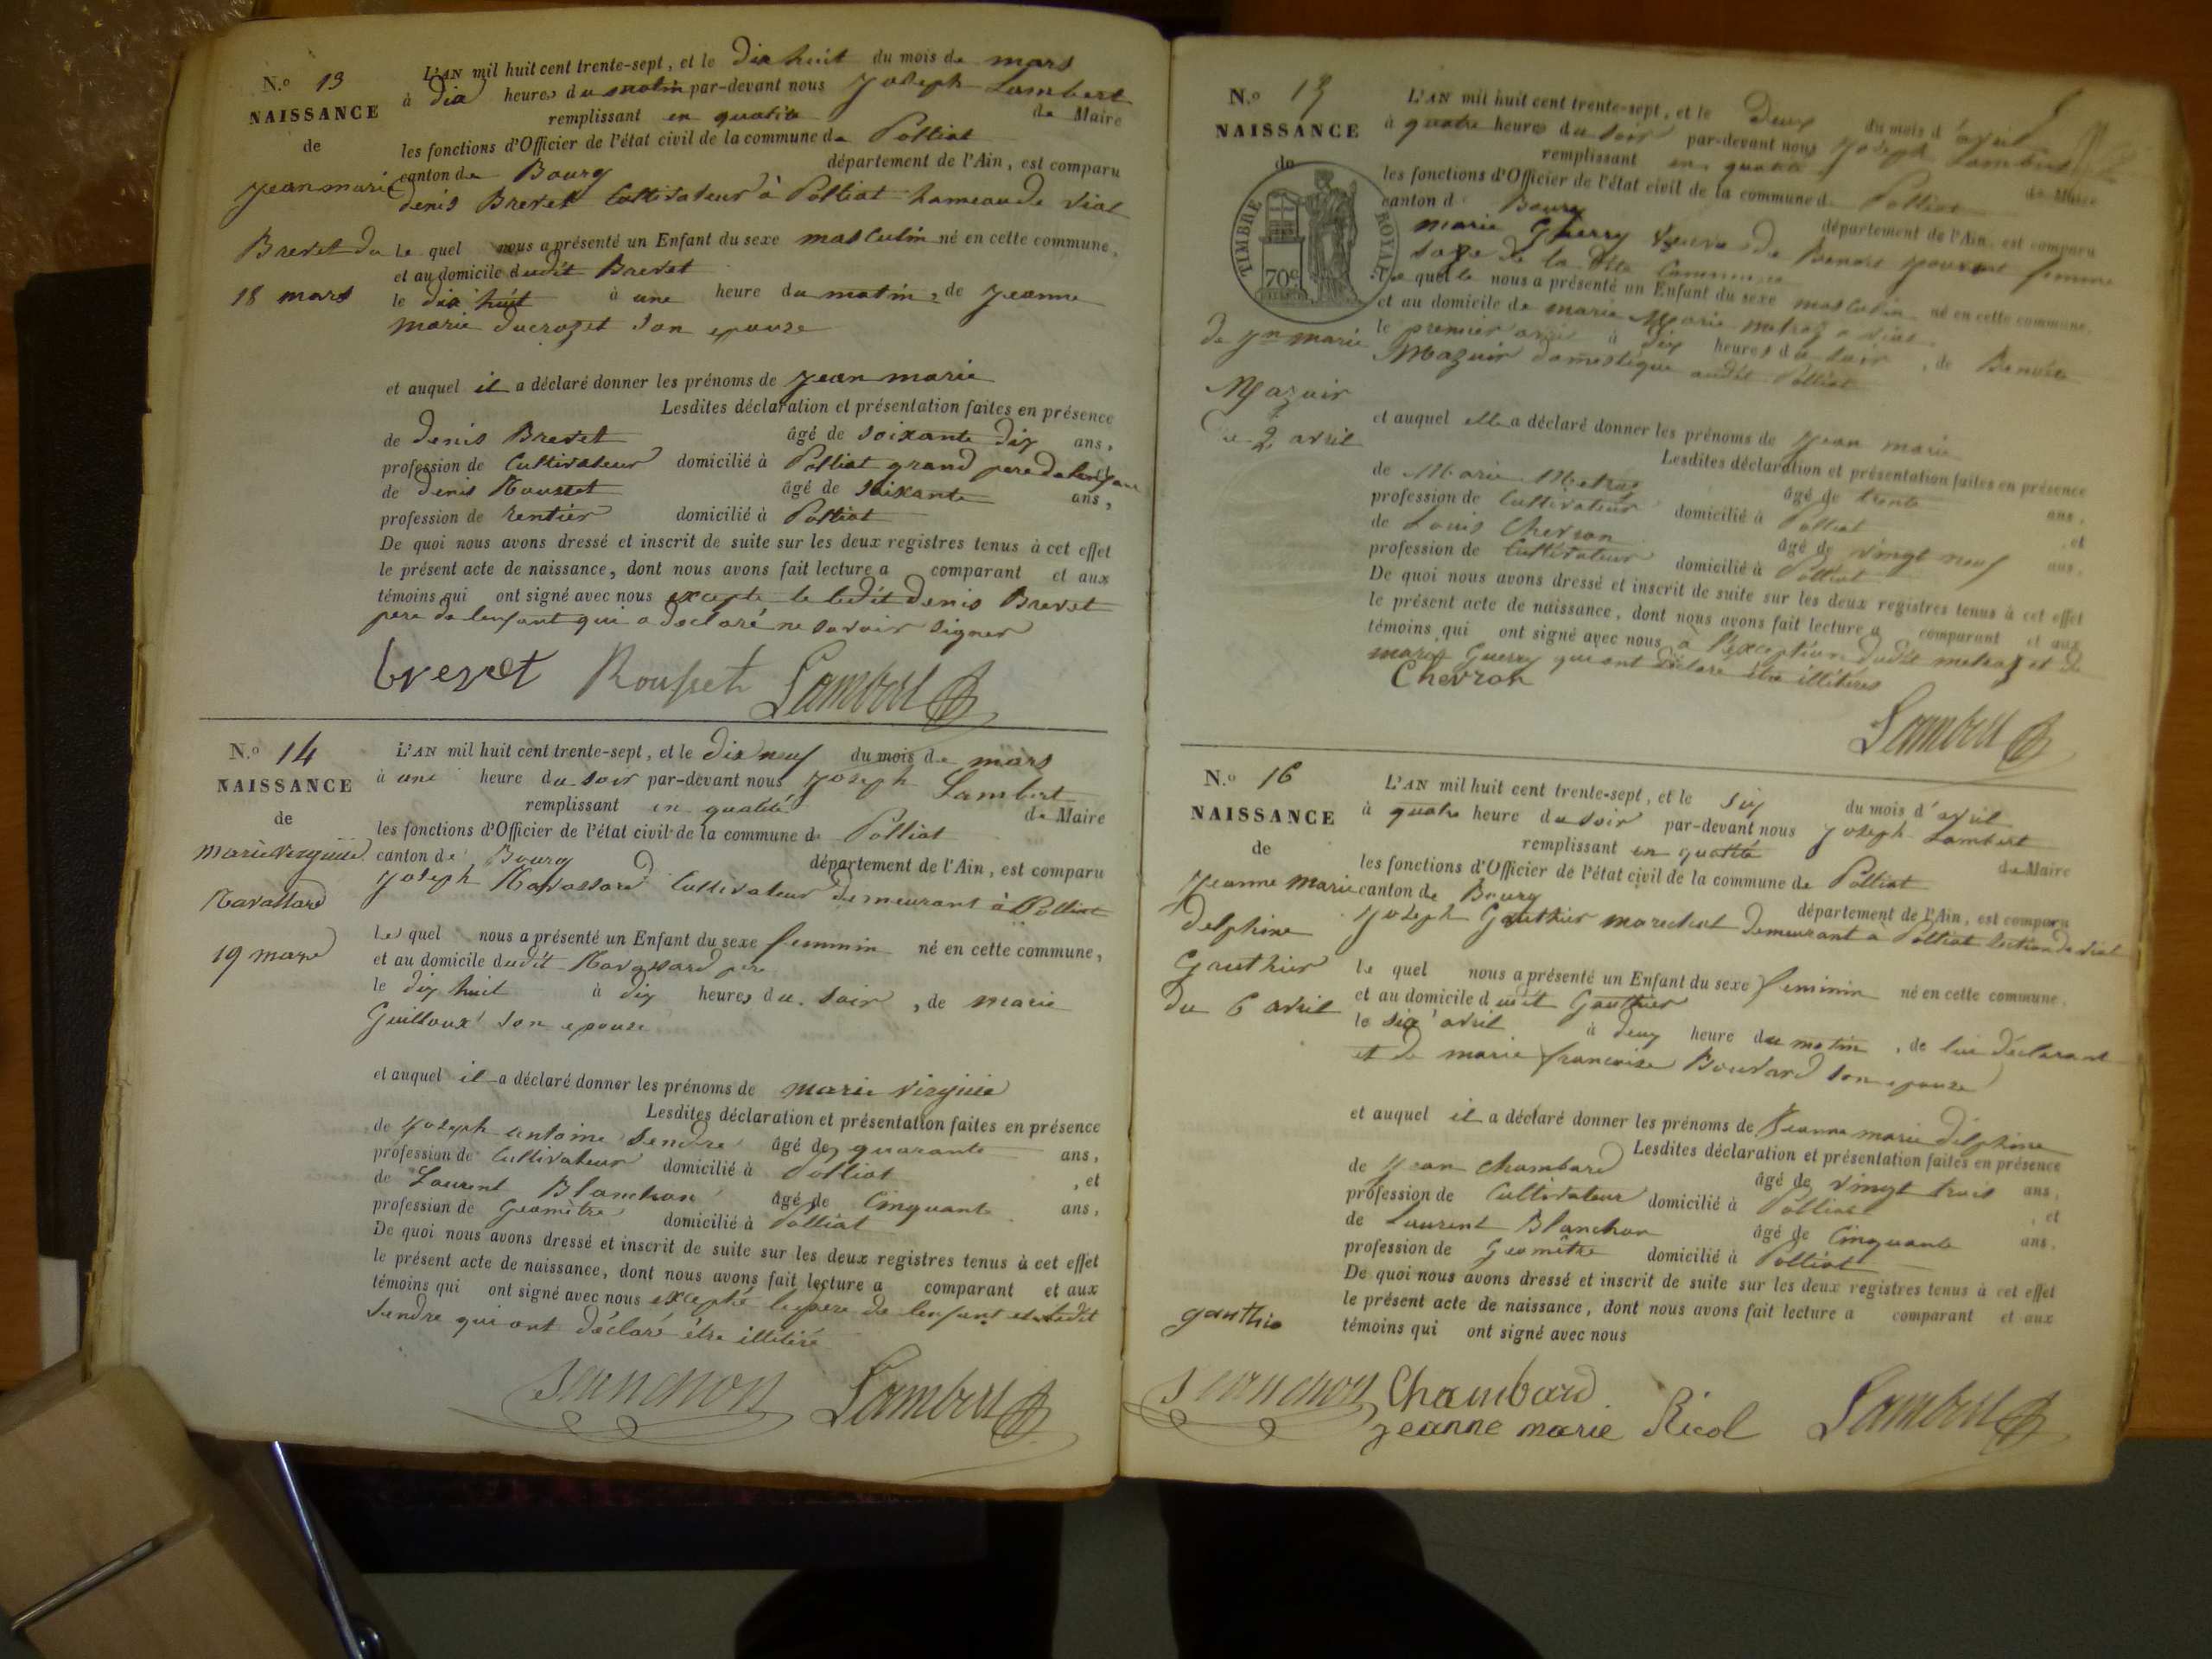 N.º 13
NAISSANCE
de
jean marie
Brevet du
18 mars
L'AN mil huit cent trente-sept, et le dix huit du mois de mars
à dix heures du matin par-devant nous Joseph Lambert
remplissant en qualité de Maire
les fonctions d'Officier de l'état civil de la commune de Polliat
canton de Bourg département de l'Ain, est comparu
denis Brevet Cultivateur à Polliat hameau de vial
le quel nous a présenté un Enfant du sexe masculin né en cette commune,
et au domicile dudit Brevet
le dix huit à une heure du matin, de jeanne
marie ducrozet son epouse
et auquel il a déclaré donner les prénoms de jean marie
Lesdites déclaration et présentation faites en présence
de denis Brevet âgé de soixante dix ans,
profession de Cultivateur domicilié à Polliat grand pere de lenfant
de denis Rousset âgé de soixante ans,
profession de rentier domicilié à Polliat
De quoi nous avons dressé et inscrit de suite sur les deux registres tenus à cet effet
le présent acte de naissance, dont nous avons fait lecture a comparant et aux
témoins qui ont signé avec nous excepte le ledit denis Brevet
pere de lenfant qui a déclaré ne savoir signer
brevet Rousset Lambert
N.º 14
NAISSANCE
de
marie virginie
Ravassard
19 mars
L'AN mil huit cent trente-sept, et le dix neuf du mois de mars
à une heure du soir par-devant nous Joseph Lambert
remplissant en qualité de Maire
les fonctions d'Officier de l'état civil de la commune de Polliat
canton de Bourg département de l'Ain, est comparu
Joseph Ravassard Cultivateur demeurant à Polliat
le quel nous a présenté un Enfant du sexe feminin né en cette commune,
et au domicile dudit Ravassard pere
le dix huit à dix heures du soir, de marie
Guilloux son epouse
et auquel il a déclaré donner les prénoms de marie virginie
Lesdites déclaration et présentation faites en présence
de Joseph antoine Sendre âgé de quarante ans,
profession de Cultivateur domicilié à Polliat, et
de Laurent Blanchon âgé de Cinquante ans,
profession de Geomètre domicilié à Polliat
De quoi nous avons dressé et inscrit de suite sur les deux registres tenus à cet effet
le présent acte de naissance, dont nous avons fait lecture a comparant et aux
témoins qui ont signé avec nous excepté le pere de lenfant et ledit
Sendre qui ont déclaré être illitiré
Lambert
N.º 15
NAISSANCE
de
TIMBRE ROYAL
70c
de jn marie
Mazuir
Du 2 avril
L'AN mil huit cent trente-sept, et le deux du mois d'avril
à quatre heures du soir par-devant nous Joseph Lambert
remplissant en qualité de Maire
les fonctions d'Officier de l'état civil de la commune d Polliat
canton d Bourg département de l'Ain, est comparu
marie Guerry veuve de Benoit femme
sage de la dite Commune
le quelle nous a présenté un Enfant du sexe masculin né en cette commune,
et au domicile de marie metraz a vial
le premier avril à dix heures du soir, de Benoite
Mazuir domestique audit Polliat
et auquel elle a déclaré donner les prénoms de jean marie
Lesdites déclaration et présentation faites en présence
de Marie Metraz âgé de trente ans,
profession de Cultivateur domicilié à Polliat, et
de Louis Chevron âgé de vingt neuf ans,
profession de Cultivateur domicilié à Polliat
De quoi nous avons dressé et inscrit de suite sur les deux registres tenus à cet effet
le présent acte de naissance, dont nous avons fait lecture a comparant et aux
témoins qui ont signé avec nous à l'exception dudit metraz et de
marie Guerry qui ont déclaré être illitéres
Chevron
Lambert
N.º 16
NAISSANCE
de
Jeanne Marie
Delphine
Gauthier
Du 6 avril
L'AN mil huit cent trente-sept, et le six du mois d'avril
à quatre heure du soir par-devant nous Joseph Lambert
remplissant en qualité de Maire
les fonctions d'Officier de l'état civil de la commune de Polliat
canton de Bourg département de l'Ain, est comparu
Joseph Gauthier marechal demeurant à Polliat section de vial
le quel nous a présenté un Enfant du sexe feminin né en cette commune,
et au domicile dudit Gauthier
le six avril à deux heure du matin, de lui déclarant
et de marie francoise Bouvard son epouse
et auquel il a déclaré donner les prénoms de Jeanne marie delphine
Lesdites déclaration et présentation faites en présence
de jean Chambard âgé de vingt trois ans,
profession de Cultivateur domicilié à Polliat, et
de Laurent Blanchon âgé de Cinquante ans,
profession de Geomètre domicilié à Polliat
De quoi nous avons dressé et inscrit de suite sur les deux registres tenus à cet effet
le présent acte de naissance, dont nous avons fait lecture a comparant et aux
témoins qui ont signé avec nous
gauthie
Chambard
jeanne marie Ricol Lambert